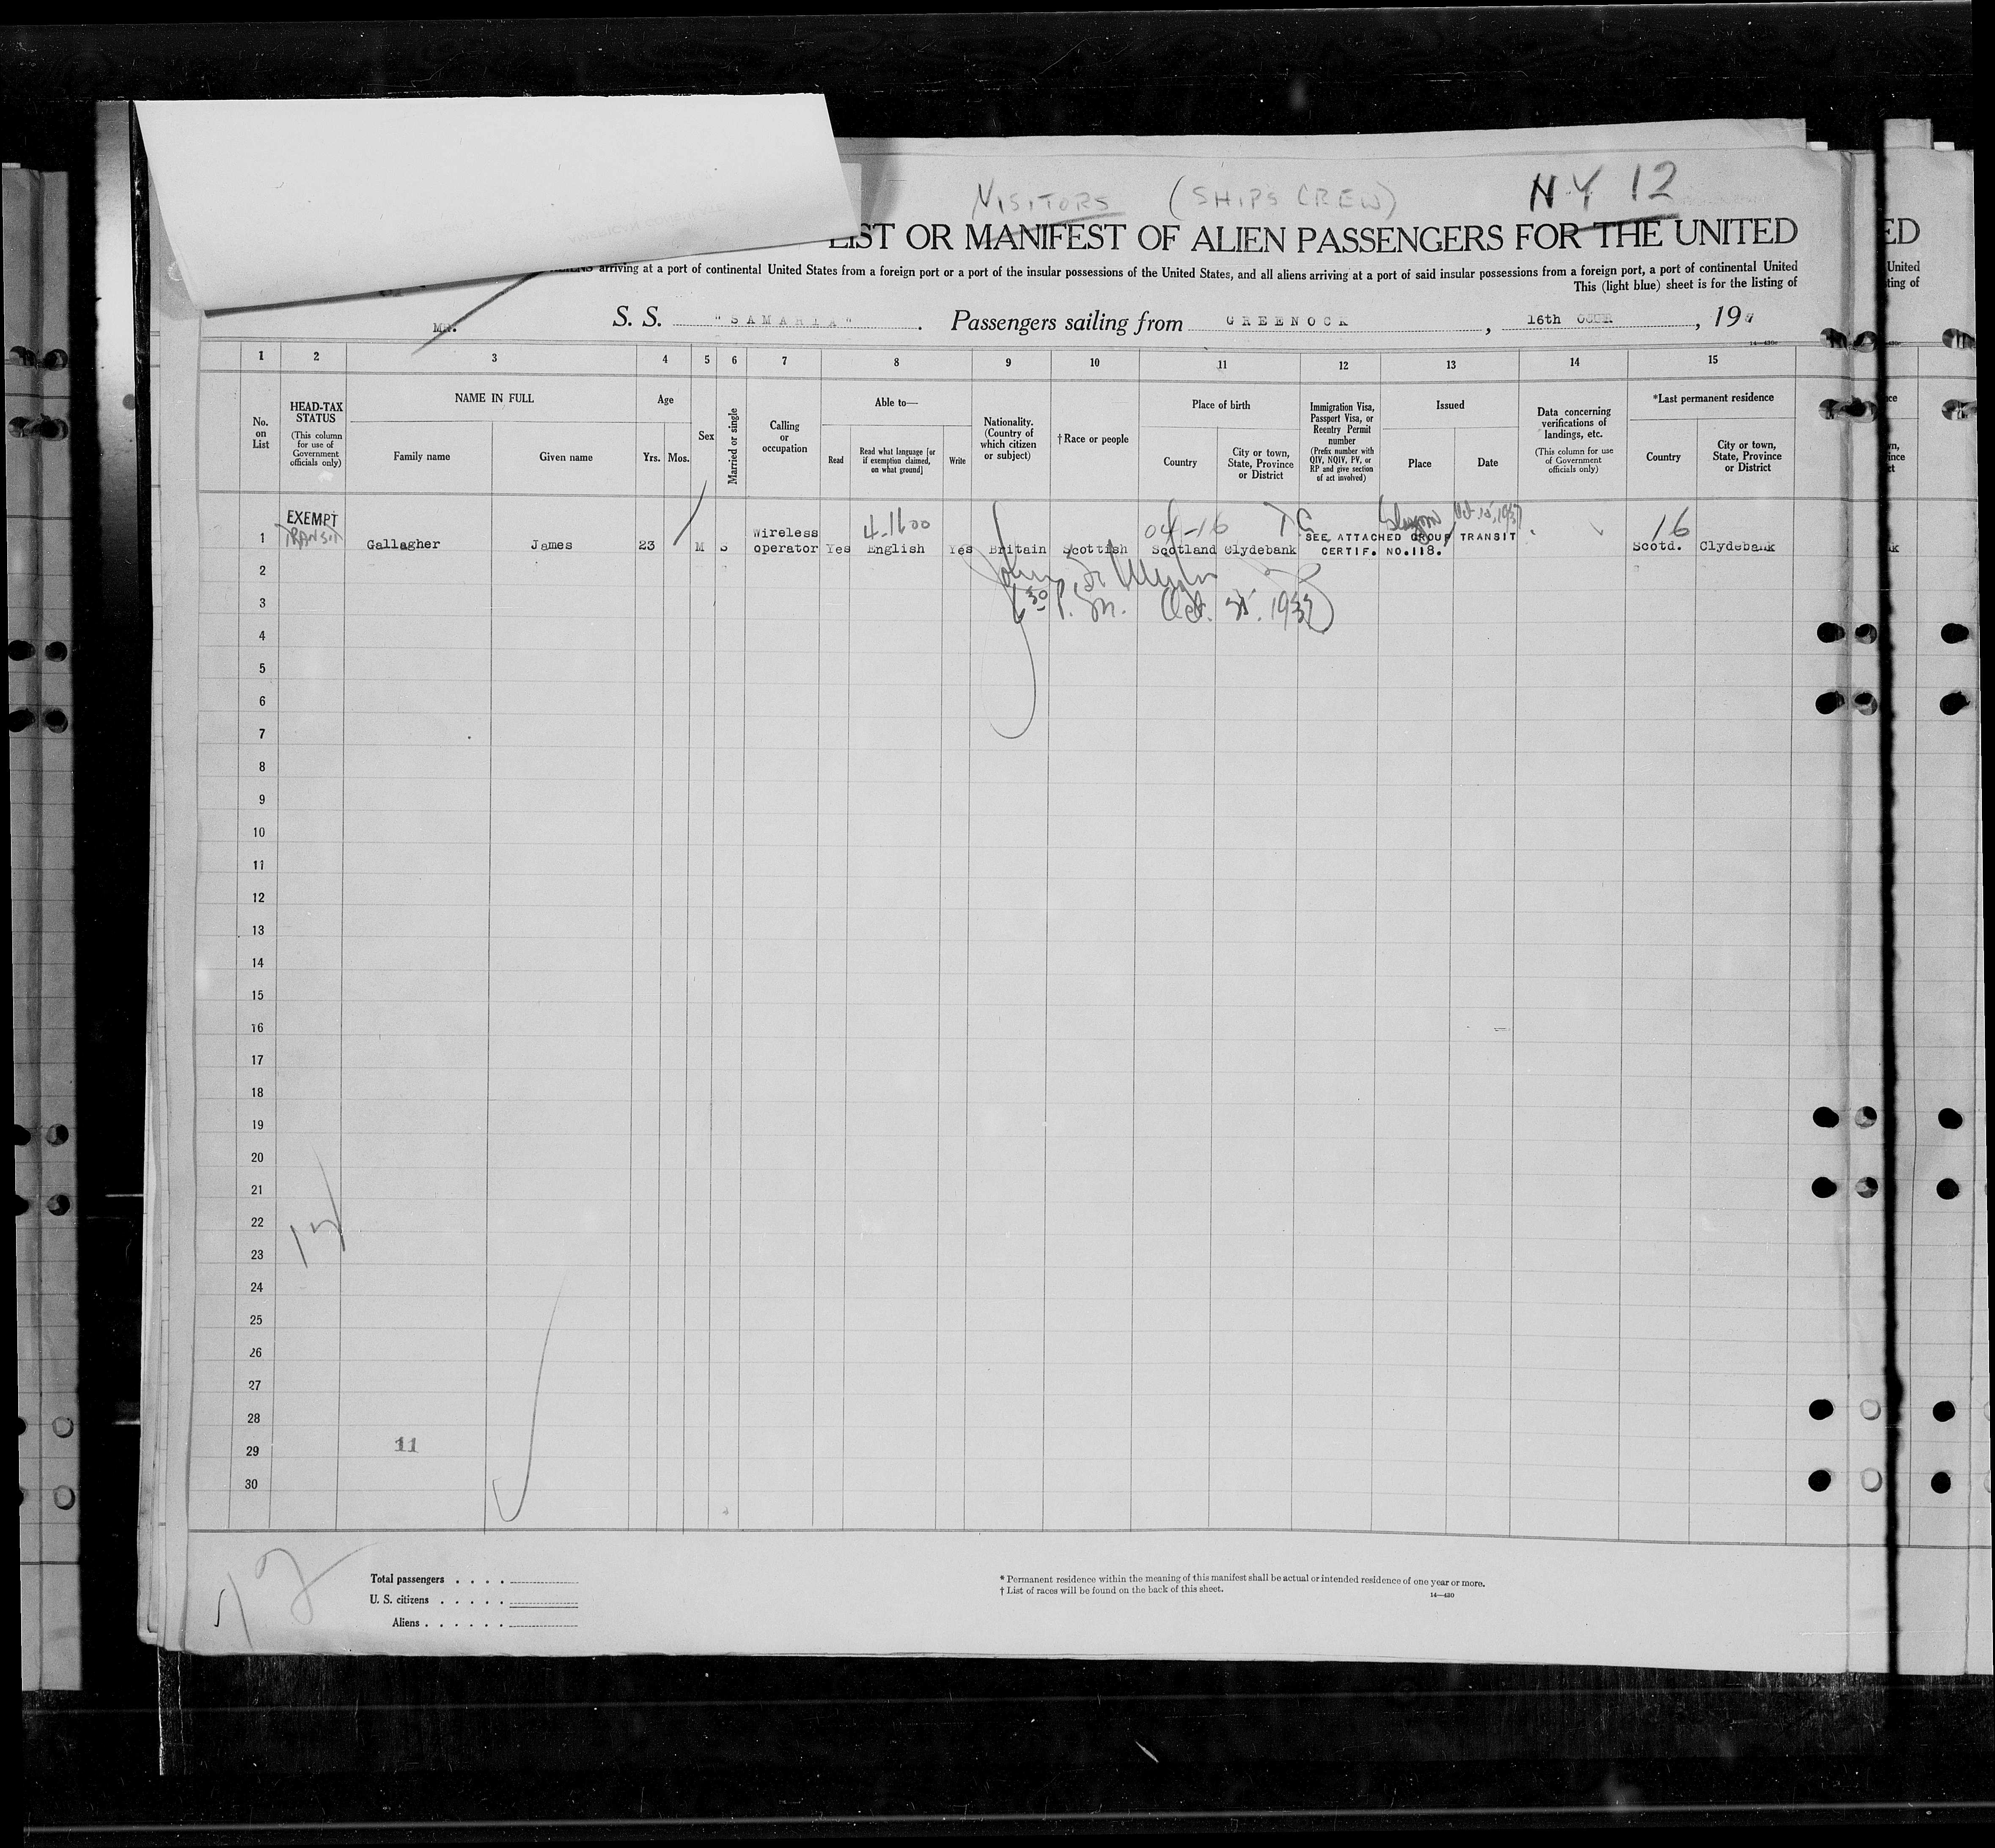 VISITORS (SHIPS CREW) NY 12
LIST OR MANIFEST OF ALIEN PASSENGERS FOR THE UNITED
arriving at a port of continental United States from a foreign port or a port of the insular possessions of the United States, and all aliens arriving at a port of said insular possessions from a foreign port, a port of continental United
This (light blue) sheet is for the listing of
S. S. "SAMARIA". Passengers sailing from GREENOCK, 16th , 19
1 2 3 4 5 6 7 8 9 10 11 12 13 14 15
No. on List
HEAD-TAX STATUS
(This column for use of Government officials only)
NAME IN FULL
Family name
Given name
Age
Yrs. Mos.
Sex
Married or single
Calling or occupation
Able to—
Read
Read what language [or if exemption claimed, on what ground]
Write
Nationality. (Country of which citizen or subject)
†Race or people
Place of birth
Country
City or town, State, Province or District
Immigration Visa, Passport Visa, or Reentry Permit number
(Prefix number with QIV, NQIV, PV, or RP and give section of act involved)
Issued
Place
Date
Data concerning verifications of landings, etc.
(This column for use of Government officials only)
*Last permanent residence
Country
City or town, State, Province or District
EXEMPT
TRANSIT
4-1600
04-16
Oct. 15, 1937
16
1 Gallagher James 23 M S Wireless operator Yes English Yes Britain Scottish Scotland Clydebank SEE ATTACHED GROUP TRANSIT CERTIF. NO.118. Scotd. Clydebank
2
6 30 P. M. Oct. 25. 1937
3
4
5
6
7
8
9
10
11
12
13
14
15
16
17
18
19
20
21
22
23
24
25
26
27
28
29 11
30
Total passengers . . . .
U. S. citizens . . . . .
Aliens . . . . . .
* Permanent residence within the meaning of this manifest shall be actual or intended residence of one year or more.
† List of races will be found on the back of this sheet.
14—430